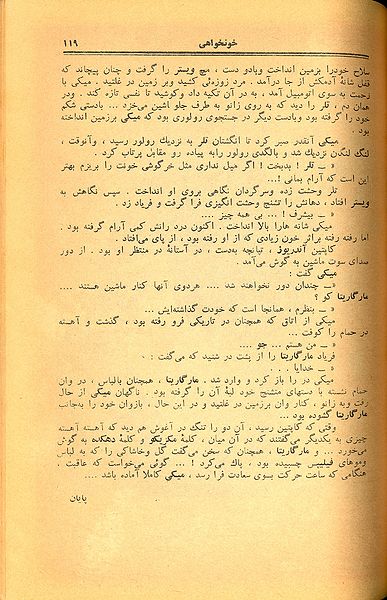 خونخواهی ۱۱۹
سلاح خودرا بزمین انداخت وبادو دست ، مچ ویستر را گرفت و چنان پیچاند که
قفل شانهٔ آدمکش از جا درآمد . مرد روزه‌ئی کشید وبر زمین در غلتید . میکی با
زحمت به سوی اتومبیل آمد ، به در آن تکیه داد وکوشید تا نفسی تازه کند . ودر
همان دم ، تلر را دید که به روی زانو به طرف جلو ماشین می‌خزد ... بادستی شکم
خود را گرفته بود وبادست دیگر در جستجوی رولوری بود که میکی برزمین انداخته
بود .
میکی آنقدر صبر کرد تا انگشتان تلر به نزدیك رولور رسید ، وآنوقت ،
لنگ لنگان نزدیك شد و بالگدی رولور رابه پیاده رو مقابل پرتاب کرد .
« ــ تلر ! بدبخت ! اگر میل نداری مثل خرگوشی خونت را بریزم بهتر
این است که آرام بمانی !...
تلر وحشت زده وسرگردان نگاهی بروی او انداخت . سپس نگاهش به
ویستر افتاد ، دهانش را تشنج وحشت انگیزی فرا گرفت و فریاد زد .
« ــ بیشرف ! ... بی همه چیز ....
میکی شانه هارا بالا انداخت . اکنون درد رانش کمی آرام گرفته بود .
اما رفته رفته براثر خون زیادی که از او رفته بود ، از پای می‌افتاد .
کاپیتن آندریوز ، تپانچه بدست ، در آستانهٔ در منتظر او بود . از دور
صدای سوت ماشین به گوش می‌آمد .
میکی گفت :
« ــ چندان دور نخواهند شد .... هردوی آنها کنار ماشین هستند ....
مارگاریتا کو ؟
« ــ بنظرم ، همانجا است که خودت گذاشته‌ایش ...
میکی از اتاق که همچنان در تاریکی فرو رفته بود ، گذشت و آهسته
در حمام را کوفت ...
« ــ من هستم ... جو ....
فریاد مارگاریتا را از پشت در شنید که می‌گفت :
« ــ خدایا . . .
میکی در را باز کرد و وارد شد . مارگاریتا ، همچنان بالباس ، در وان
حمام نشسته با دستهای متشنج خود لبهٔ آن را گرفته بود . ناگهان میکی از حال
رفت وبه زانو ، کنار وان برزمین در غلتید و در این حال ، بازوان خود را بجانب
مارگاریتا گشوده بود ...
وقتی که کاپیتن رسید ، آن دو را تنگ در آغوش هم دید که آهسته آهسته
چیزی به یکدیگر می‌گفتند که در آن میان ، کلمهٔ مکزیکو و کلمهٔ دهکده به گوش
می‌خورد ... و مارگاریتا ، همچنان که سخن می‌گفت گل وخاشاکی را که به لباس
وموهای فیلیپس چسبیده بود ، پاك می‌کرد ! ... گوئی می‌خواست که عاقبت .
هنگامی که ساعت حرکت بسوی سعادت فرا رسد ، میکی کاملا آماده باشد ....
پایان